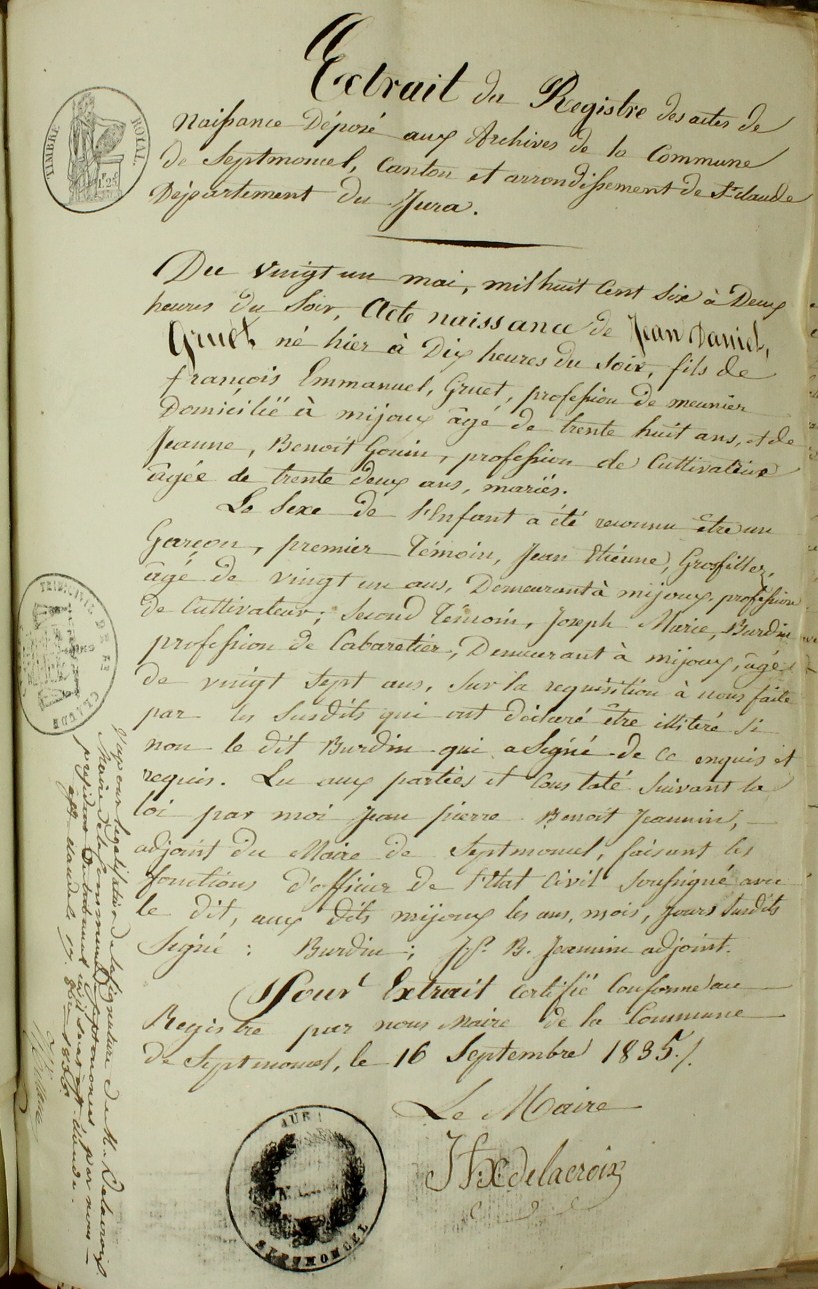 Extrait du Registre des actes de
Naissance Déposé aux Archives de la Commune
de Septmoncel, Canton et arrondissement de St Claude
Département du Jura.
TIMBRE ROYAL.
Du vingt un mai, mil huit Cent Six à Deux
heures du Soir, Acte naissance de Jean Daniel,
Gruet né hier à Dix heures du Soir, fils de
françois Emmanuel, Gruet, profession de meunier
Domicilié à mijoux âgé de trente huit ans, et de
Jeanne, Benoit Gouin, profession de Cultivatrice
âgée de trente deux ans, mariés.
Le Sexe de l'Enfant a été reconnu être un
Garçon, premier Témoin, Jean Etiénne, Grosfiller,
âgé de vingt un ans, Demeurant à mijoux, profession
de Cultivateur; Second Témoin, Joseph Marie, Burdin
profession de Cabaretier, Demeurant à mijoux, âgé
de vingt Sept ans, Sur la requisition à nous faite
par les Susdits qui ont déclaré être illitéré Si
non le dit Burdin qui a Signé de ce enquis et
requis. Lu aux parties et Constaté Suivant la
loi par moi Jean pierre Benoit Jeannin,
adjoint du Maire de Septmoncel, faisant les
fonctions d'officier de l'Etat Civil Soussigné avec
le dit, aux dits mijoux les ans, mois, jours Susdits
Signé: Burdin; J. B. Jeannin adjoint.
Pour Extrait Certifié Conforme au
Registre par nous Maire de la Commune
de Septmoncel, le 16 Septembre 1835./.
Le Maire
Delacroix
SEPTMONCEL
CLAUDE
Vu pour légalisation de la signature de M. Delacroix
Maire de la Commune de Septmoncel par nous
président du tribunal civil séant à St Claude.
St Claude le 17. 1835